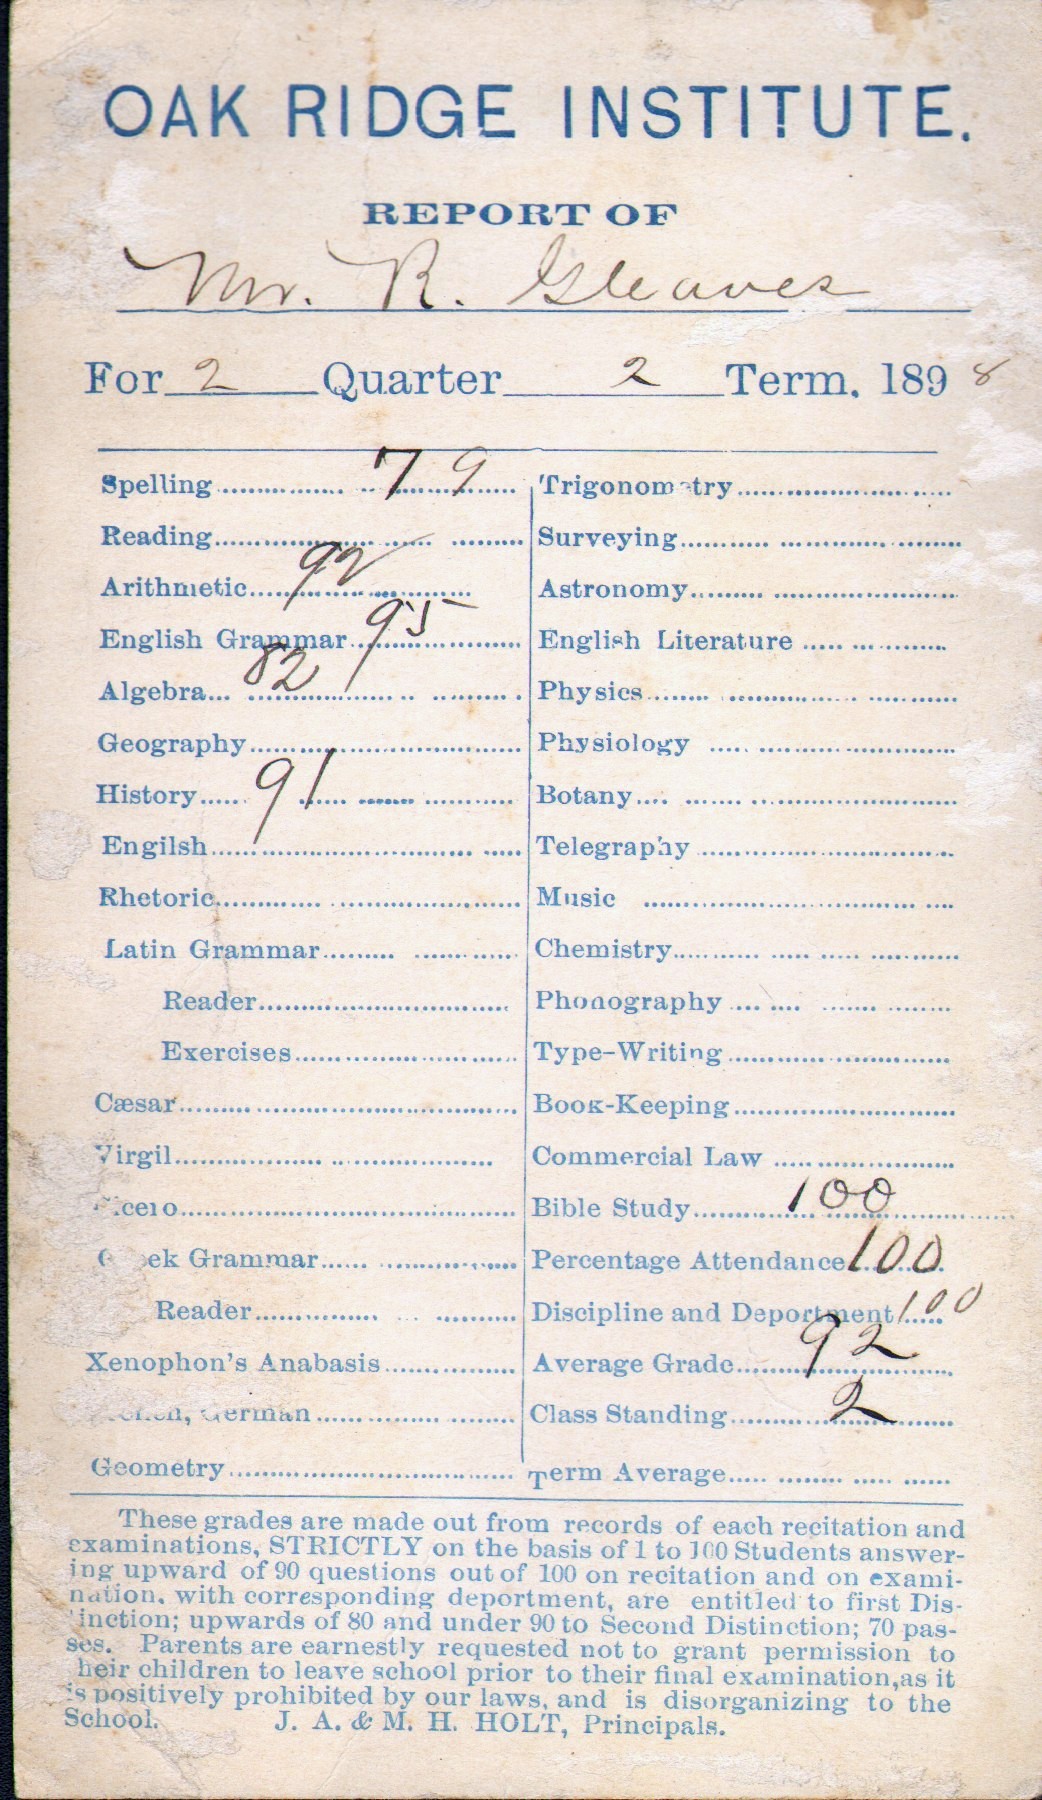 OAK RIDGE INSTITUTE.
REPORT OF
Mr. R. Gleaves
For 2 Quarter 2 Term, 1898
Spelling 79
Reading
Arithmetic 92
English Grammar 95
Algebra 82
Geography
History 91
Engilsh
Rhetoric
Latin Grammar
Reader
Exercises
Cæsar
Virgil
Cicero
Greek Grammar
Reader
Xenophon's Anabasis
French, German
Geometry
Trigonometry
Surveying
Astronomy
English Literature
Physics
Physiology
Botany
Telegraphy
Music
Chemistry
Phonography
Type-Writing
Book-Keeping
Commercial Law
Bible Study 100
Percentage Attendance 100
Discipline and Deportment 100
Average Grade 92
Class Standing 2
Term Average
These grades are made out from records of each recitation and
examinations, STRICTLY on the basis of 1 to 100 Students answer-
ing upward of 90 questions out of 100 on recitation and on exami-
nation, with corresponding deportment, are entitled to first Dis-
tinction; upwards of 80 and under 90 to Second Distinction; 70 pas-
ses. Parents are earnestly requested not to grant permission to
their children to leave school prior to their final examination, as it
is positively prohibited by our laws, and is disorganizing to the
School. J. A. & M. H. HOLT, Principals.